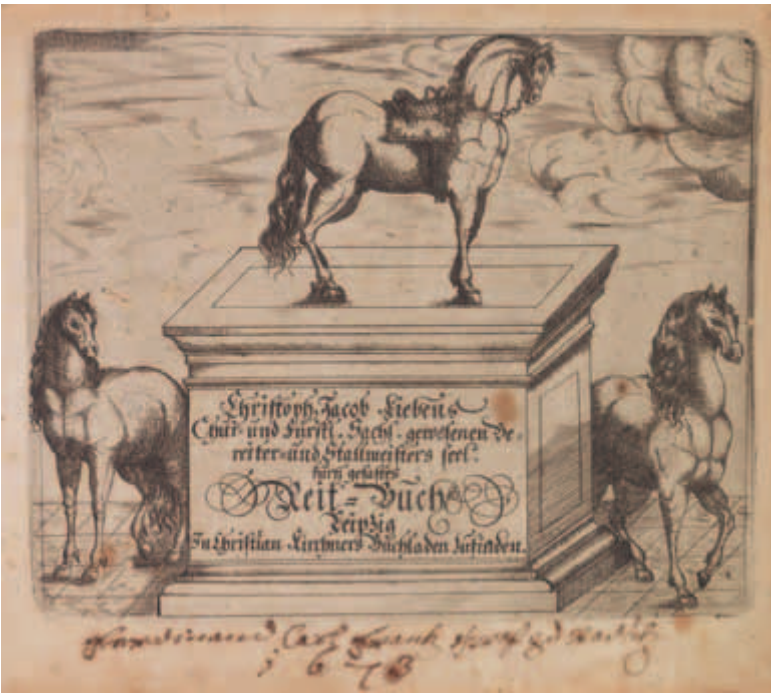 Christoph Jacob Liebens
Chur- und Fürstl. Sächs. gewesenen Be-
reiter- und Stallmeisters seel.
kurtz gefastes
Reit-Buch
Leipzig
In Christian Kirchners Buchladen zufinden.
Carl
1673